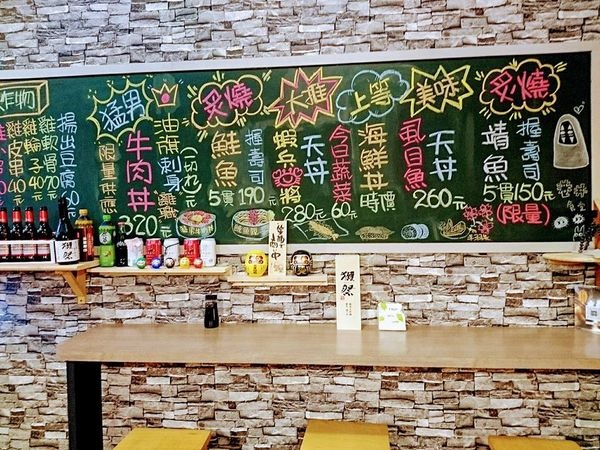 炸物
雞皮串
40元
雞輪子
40元
雞軟骨
70元
揚出豆腐
60元
猛男
牛肉丼
限量供應
320元
油旗刺身
(一切れ)
炙燒
鮭魚
握壽司
5貫190元
大推
蝦兵
將
天丼
280元
今日蔬菜
60元
上等
海鮮丼
時價
美味
虱目魚
天丼
260元
炙燒
鯖魚
握壽司
5貫150元
(限量)
獺祭
獺祭
中